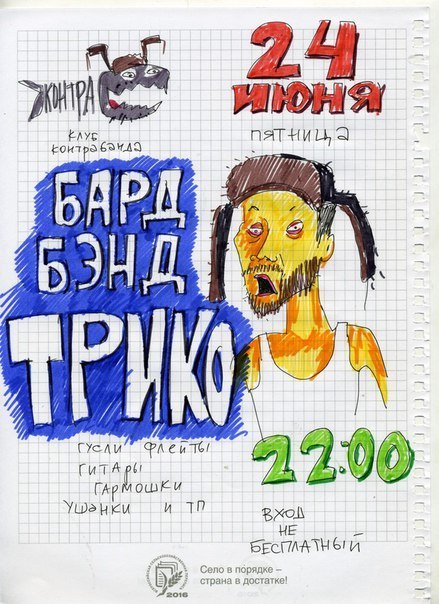 КОНТРА
КЛУБ
КОНТРАБАНДА
24
ИЮНЯ
ПЯТНИЦА
БАРД
БЭНД
ТРИКО
ГУСЛИ ФЛЕЙТЫ
ГИТАРЫ
ГАРМОШКИ
УШАНКИ И ТП
22:00
ВХОД
НЕ
БЕСПЛАТНЫЙ
2016
Село в порядке –
страна в достатке!